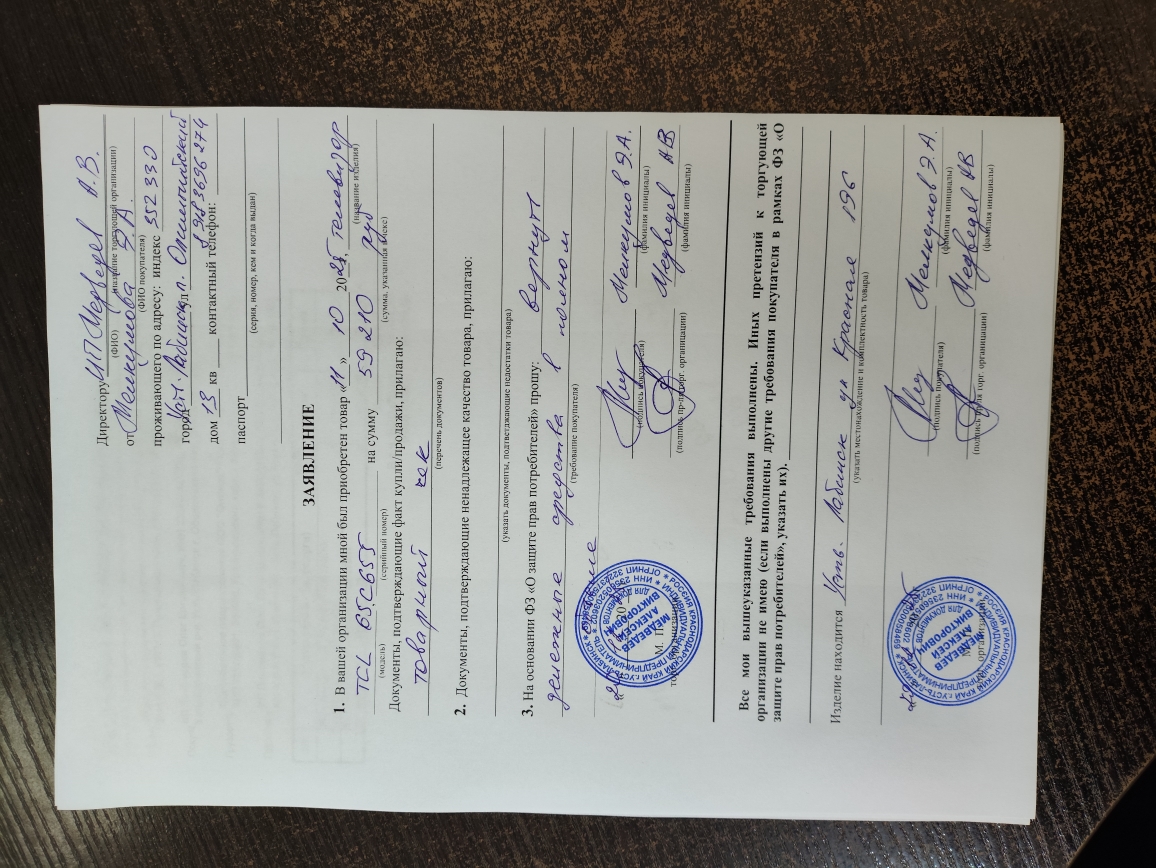 Директору ИП Медведев А.В.
(ФИО) (название торгующей организации)
от Мешкумова Э.А.
(ФИО покупателя)
проживающего по адресу: индекс 352330
город Уст. Лабинск ул. Олимпийский
дом 13 кв контактный телефон: 8918 3696274
паспорт
(серия, номер, кем и когда выдан)
ЗАЯВЛЕНИЕ
1. В вашей организации мной был приобретен товар «11» 10 2025 г. телевизор
(название изделия)
TCL 65C655 на сумму 59210 руб
(модель) (серийный номер) (сумма, указанная в чеке)
Документы, подтверждающие факт купли/продажи, прилагаю:
товарный чек
(перечень документов)
2. Документы, подтверждающие ненадлежащее качество товара, прилагаю:
(указать документы, подтверждающие недостатки товара)
3. На основании ФЗ «О защите прав потребителей» прошу: вернуть
денежные средства в полном
(требование покупателя)
Мешкумов Э.А.
(подпись покупателя) (фамилия инициалы)
20
Медведев АВ
М. П.
(подпись пр-ля торг. организации) (фамилия инициалы)
РОССИЯ КРАСНОДАРСКИЙ КРАЙ Г.УСТЬ-ЛАБИНСК
ИНДИВИДУАЛЬНЫЙ ПРЕДПРИНИМАТЕЛЬ
МЕДВЕДЕВ
АЛЕКСЕЙ
ВИКТОРОВИЧ
ДЛЯ ДОКУМЕНТОВ
Все мои вышеуказанные требования выполнены. Иных претензий к торгующей
организации не имею (если выполнены другие требования покупателя в рамках ФЗ «О
защите прав потребителей», указать их).
Изделие находится Усть. Лабинск ул Красная 196
(указать местонахождение и комплектность товара)
Мешкумов Э.А.
(подпись покупателя) (фамилия инициалы)
Медведев АВ
(подпись пр-ля торг. организации) (фамилия инициалы)
РОССИЯ КРАСНОДАРСКИЙ КРАЙ Г.УСТЬ-ЛАБИНСК
ИНДИВИДУАЛЬНЫЙ ПРЕДПРИНИМАТЕЛЬ
МЕДВЕДЕВ
АЛЕКСЕЙ
ВИКТОРОВИЧ
ДЛЯ ДОКУМЕНТОВ